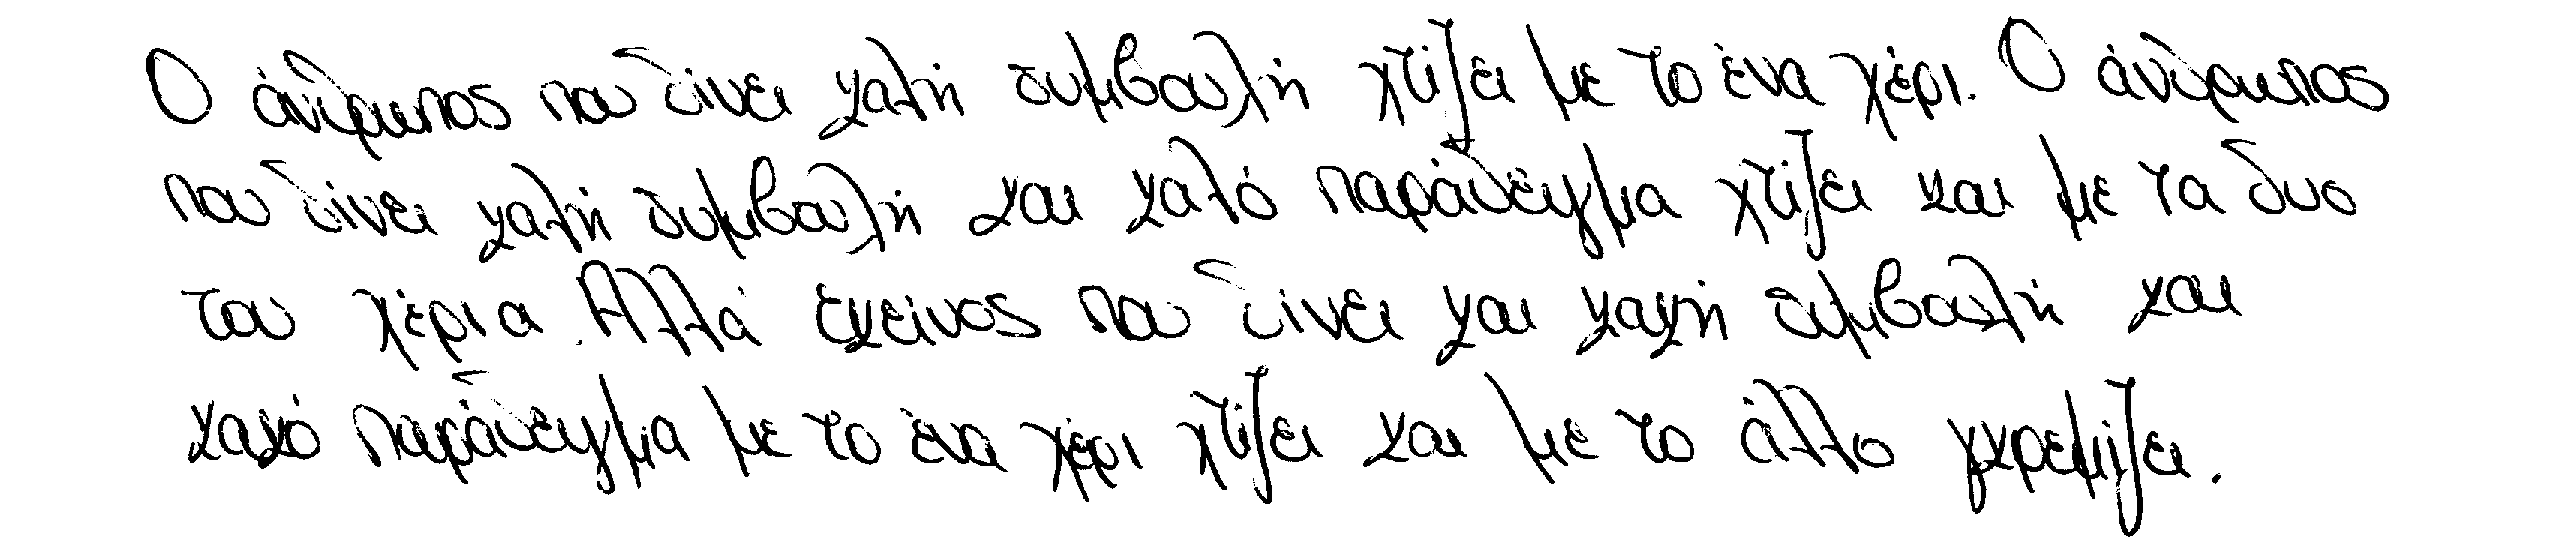 Ο άνθρωπος που δίνει καλή συμβουλή χτίζει με το ένα χέρι. Ο άνθρωπος
που δίνει καλή συμβουλή και καλό παράδειγμα χτίζει και με τα δυο
του χέρια. Αλλά εκείνος που δίνει και κακή συμβουλή και
κακό παράδειγμα με το ένα χέρι χτίζει και με το άλλο γκρεμίζει.